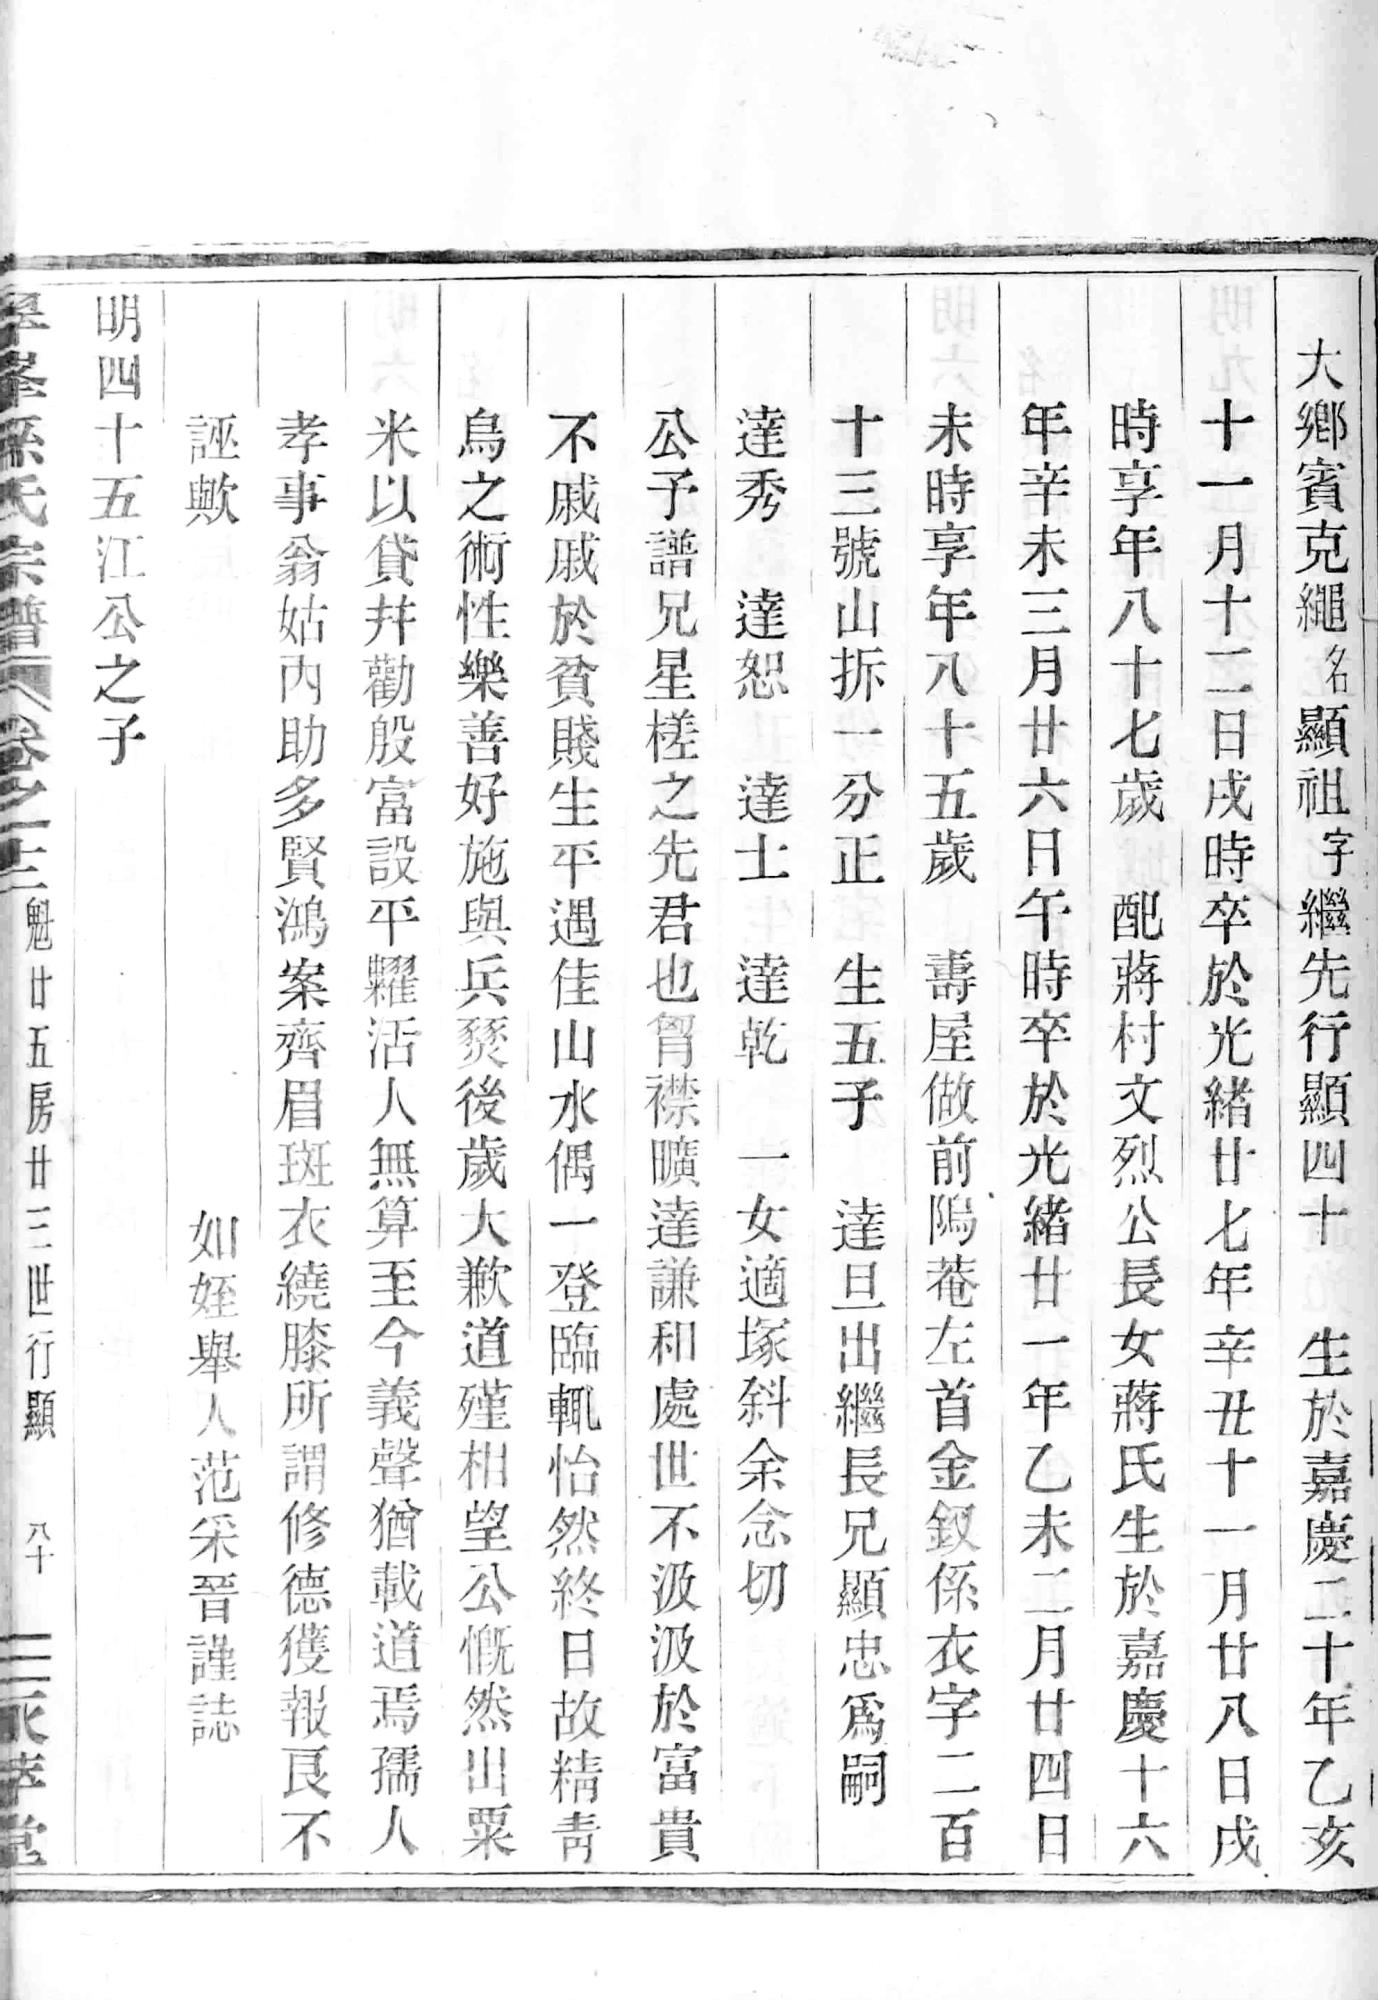 大鄉賓克繩名顯祖字繼先行顯四十　生於嘉慶二十年乙亥
十一月十二日戌時卒於光緒廿七年辛丑十一月廿八日戌
時享年八十七歲　配蔣村文烈公長女蔣氏生於嘉慶十六
年辛未三月廿六日午時卒於光緒廿一年乙未二月廿四日
未時享年八十五歲　壽屋做前隝菴左首金釵係衣字二百
十三號山拆一分正　生五子　達旦出繼長兄顯忠爲嗣
達秀　達恕　達士　達乾　一女適塚斜余念切
公予譜兄星槎之先君也胷襟曠達謙和處世不汲汲於富貴
不戚戚於貧賤生平遇佳山水偶一登臨輒怡然終日故精靑
烏之術性樂善好施與兵燹後歲大歉道殣相望公慨然出粟
米以貸幷勸殷富設平糶活人無算至今義聲猶載道焉孺人
孝事翁姑內助多賢鴻案齊眉斑衣繞膝所謂修德獲報良不
誣歟　如姪舉人范采晉謹誌
明四十五江公之子
孫氏宗譜　卷之十三　魁廿五房廿三世行顯　八十　萃堂